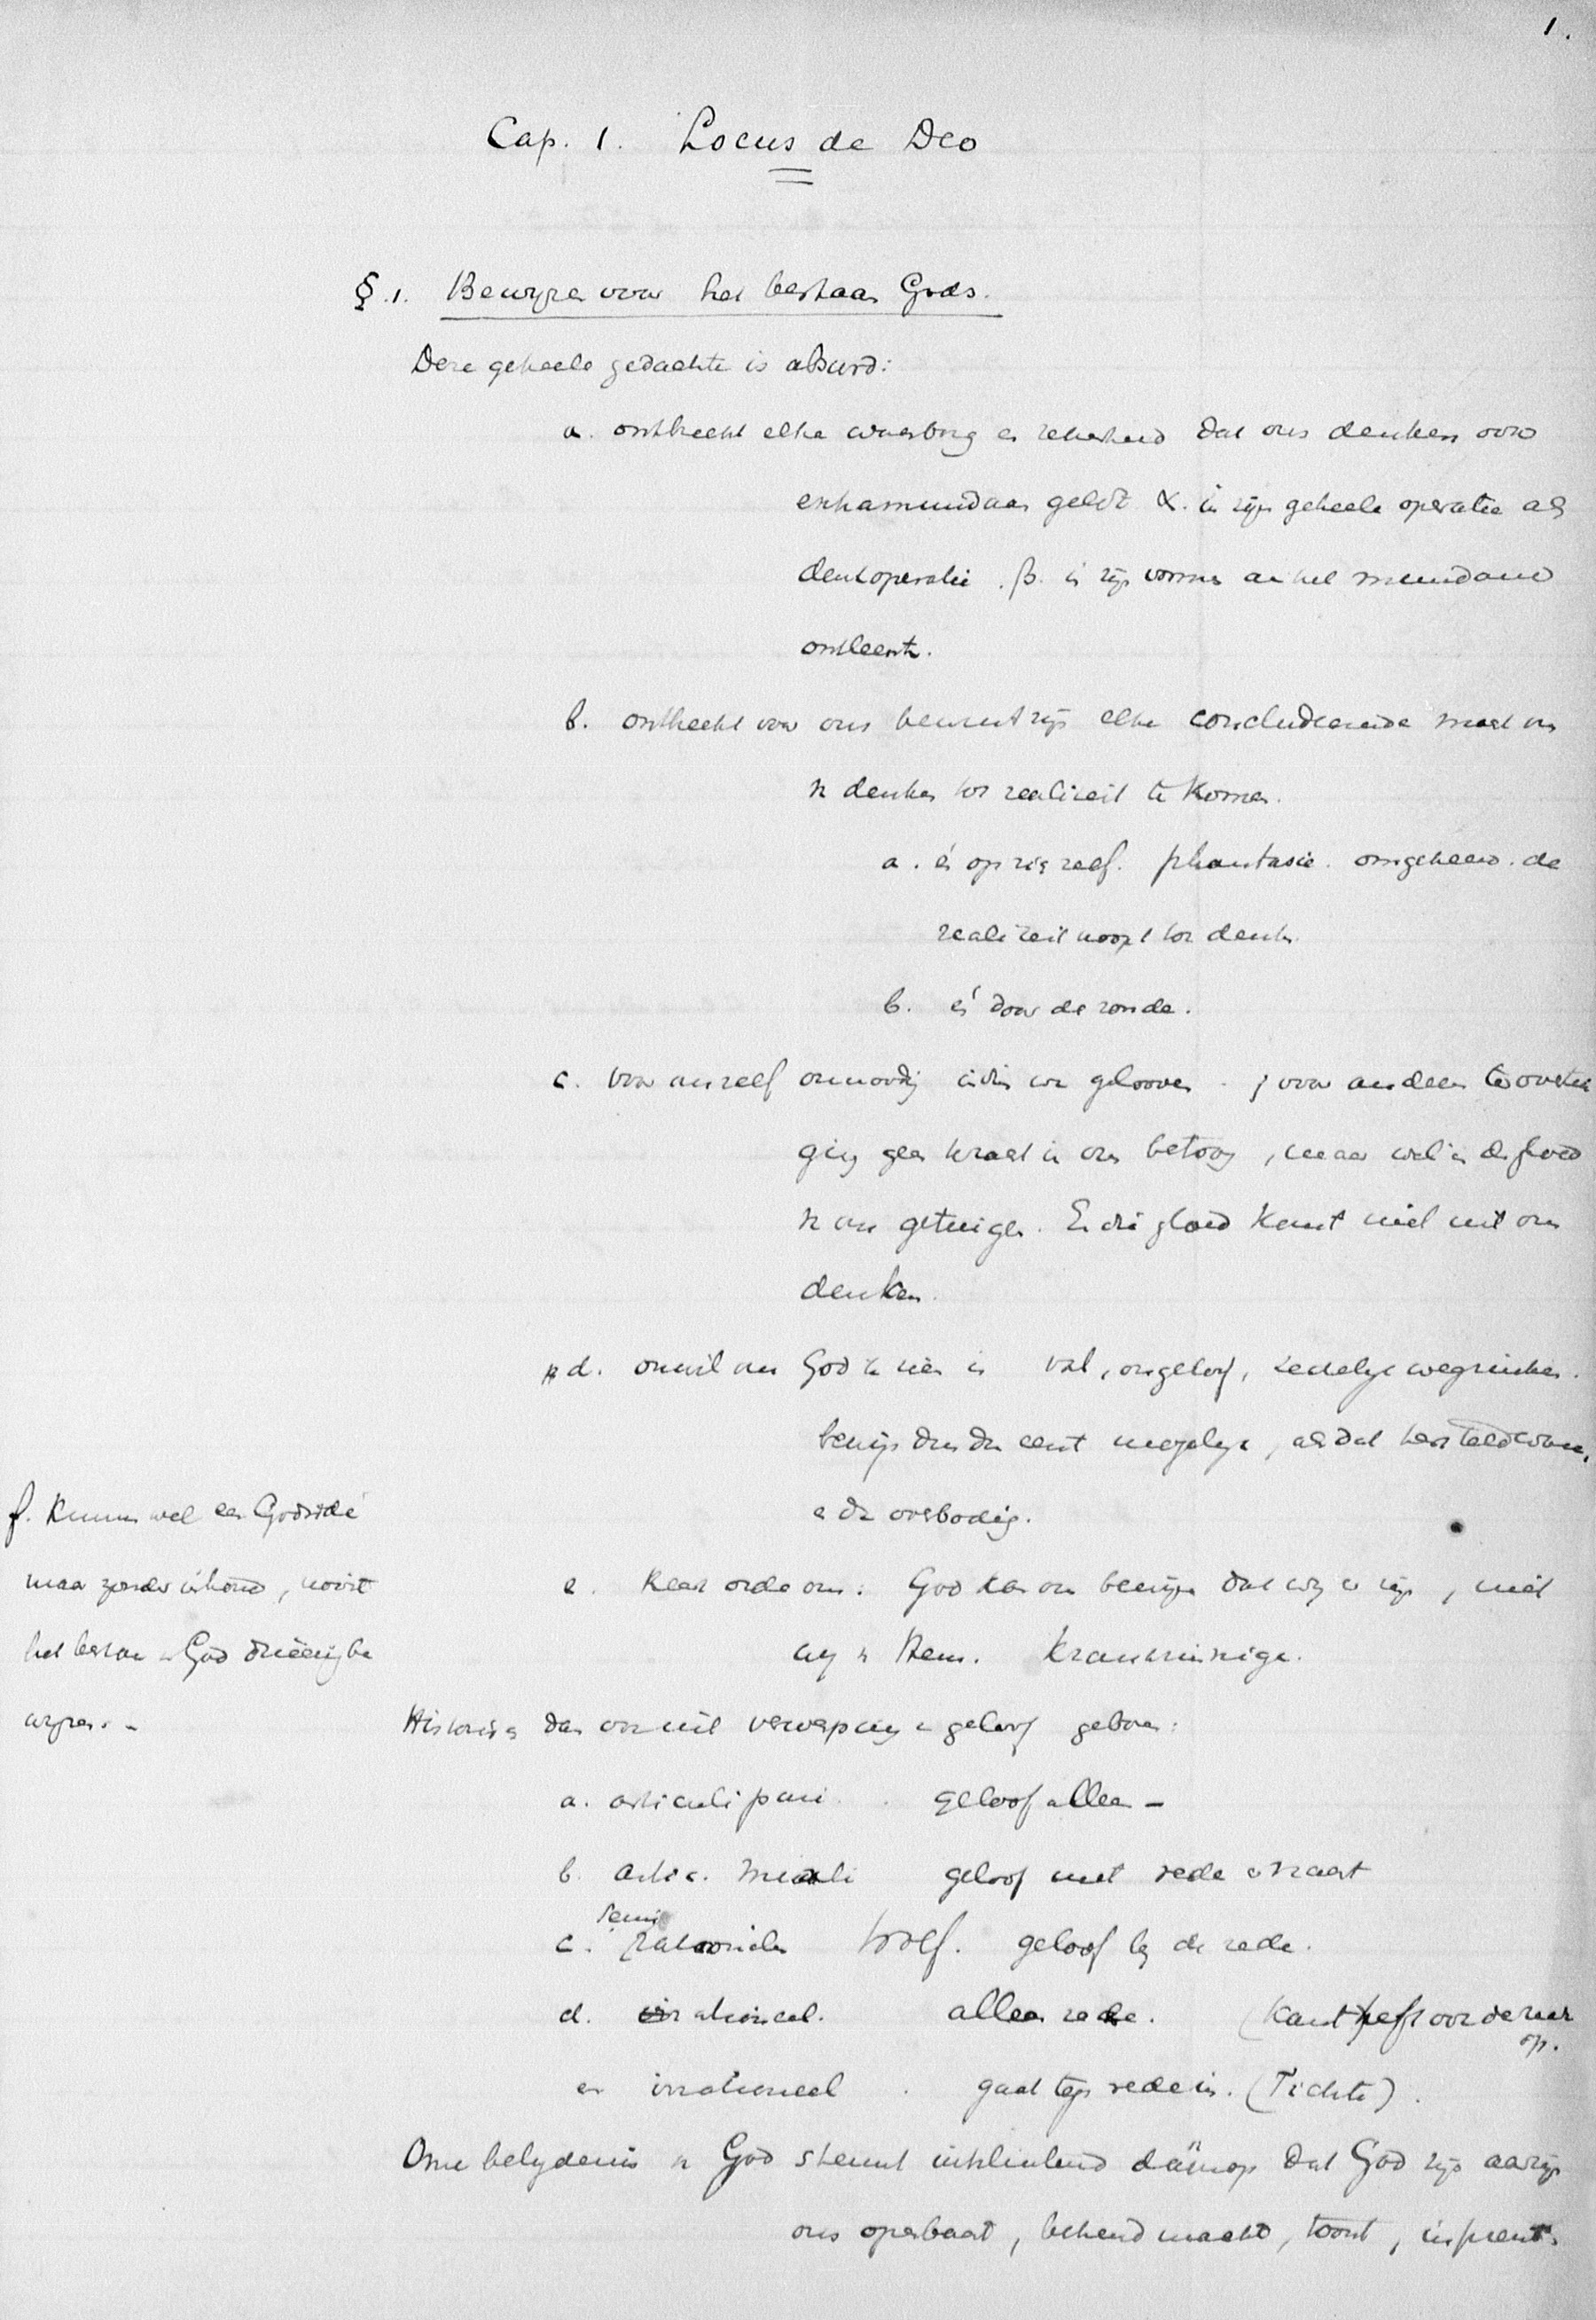 1.
Cap. 1. Locus de Deo
§.1. Bewijzen voor het bestaan Gods.
Deze geheele gedachte is absurd:
a. ontbreekt elke waarborg en zekerheid dat ons denken voor
extramundaan geldt α. in zijn geheele operatie als
denkoperatie. β. in zijn vormen aan het mundane
ontleent.
b. ontbreekt voor ons bewustzijn elke concludeerende macht om
v denken tot realiteit te komen.
a. én op zich zelf. phantasie. omgekeerd. de
realiteit noopt tot denken.
b. én door de zonde.
c. voor onszelf onnoodig indien we gelooven. ; voor anderen ter overtui
ging geen kracht in ons betoog, maar wel in de gloed
v ons getuigen. En die gloed komt niet uit ons
denken.
d. onwil om God te zien is val, ongeloof, zedelijk wegzinken.
bewijs dus dan eerst mogelijk, als dat hersteld ware,
en dan overbodig.
f. Kunnen wel een Godsidé
maar zonder inhoud, nooit
het bestaan v God drieëenig be
wijzen. -
e. Keer orde om: God kan ons bewijzen dat wij er zijn, niet
wij v Hem. Krankzinnige.
Historisch dan ook uit verwerping v geloof geboren:
a. articuli puri. geloof alleen -
b. artic. mixti geloof met rede ernaast
c. semi rationeelen Wolf. geloof bij de rede.
d. rationeel. alleen rede. (Kant heft voor de rede
op.
e. irrationeel. gaat tegen rede in. (Fichte).
Onze belijdenis v God steunt uitsluitend daarop dat God zijn aanzijn
ons openbaart, bekend maakt, toont, inprent.